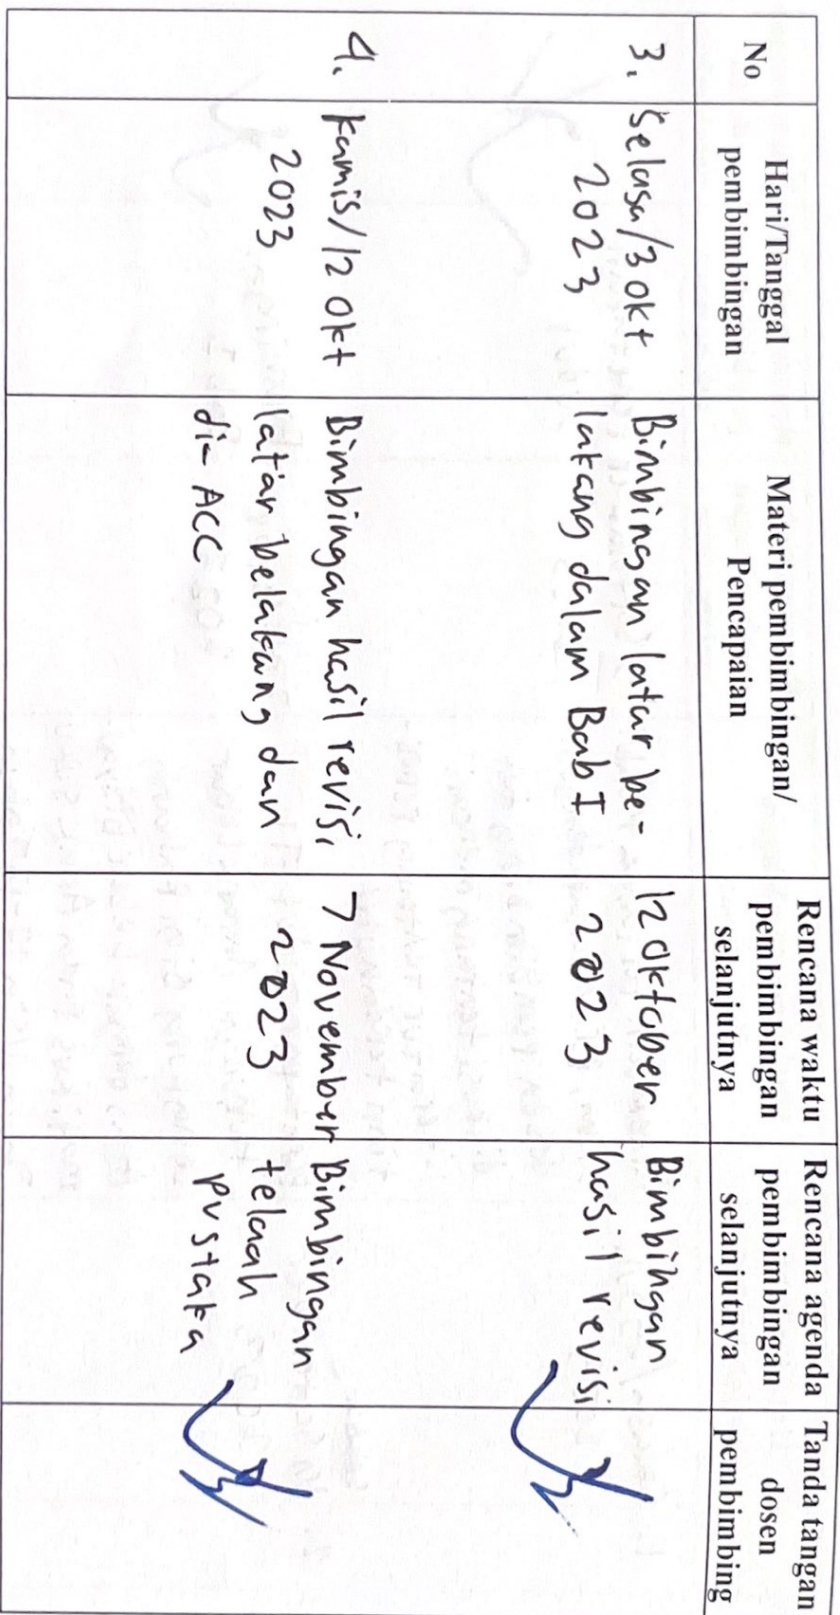 No
Hari/Tanggal
pembimbingan
Materi pembimbingan/
Pencapaian
Rencana waktu
pembimbingan
selanjutnya
Rencana agenda
pembimbingan
selanjutnya
Tanda tangan
dosen
pembimbing
3.
Selasa/3 Okt
2023
Bimbingan latar be-
lakang dalam Bab I
12 Oktober
2023
Bimbingan
hasil revisi
4.
Kamis/12 Okt
2023
Bimbingan hasil revisi
latar belakang dan
di- ACC
7 November
2023
Bimbingan
telaah
pustaka